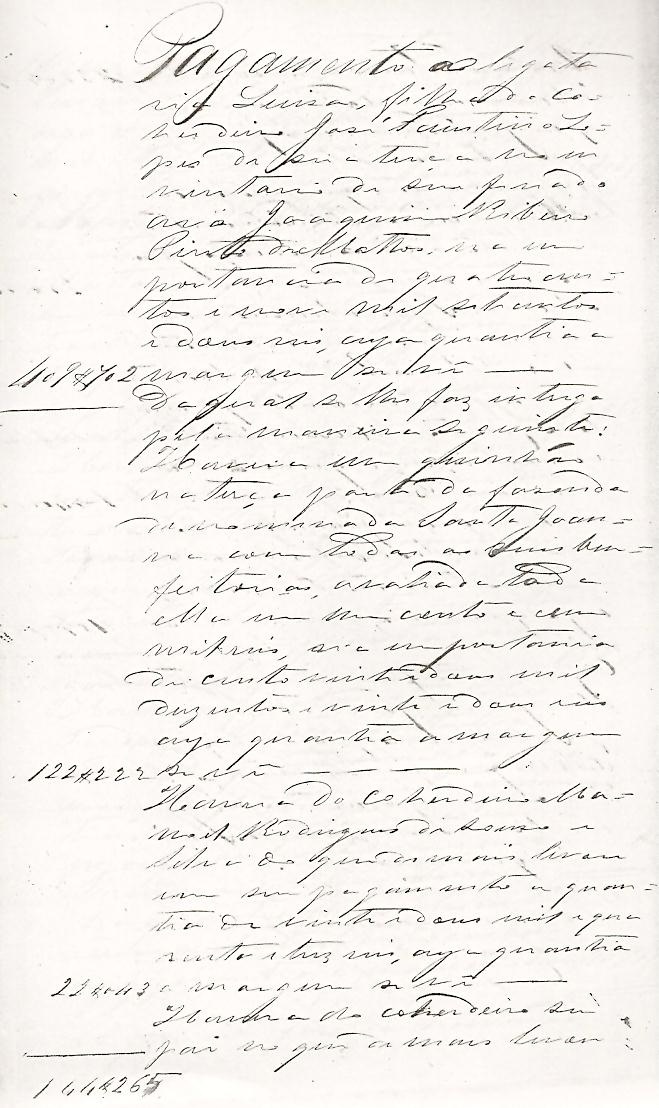 Pagamento a legata
ria Luisa, filha do Co-
herdeiro José Faustino Lo-
pes da sua terça no in
ventario de seu finado
avô Joaquim Ribeiro
Pinto de Mattos, na im
portancia de quatrocen-
tos e nove mil setecentos
e dous reis, cuja quantia a
409$702 margem se vê
Da qual se lhe faz entrega
pela maneira seguinte:
Haverá um quinhão
na terça parte da fazenda
denominada Santa Joan-
na com todas as suas bem-
feitorias, avaliada toda
ella em um conto e cem
mil reis, sua importancia
de cento vinte dous mil
duzentos e vinte e dous reis
cuja quantia a margem
122$222 se vê
Haverá do coherdeiro Ma-
noel Rodrigues de Souza e
Silva do que de mais levou
em seu pagamento a quan-
tia de vinte e dous mil e qua
renta e tres reis, cuja quantia
22$043 a margem se vê
Haverá do coherdeiro seu
pai no que de mais levou
144$265